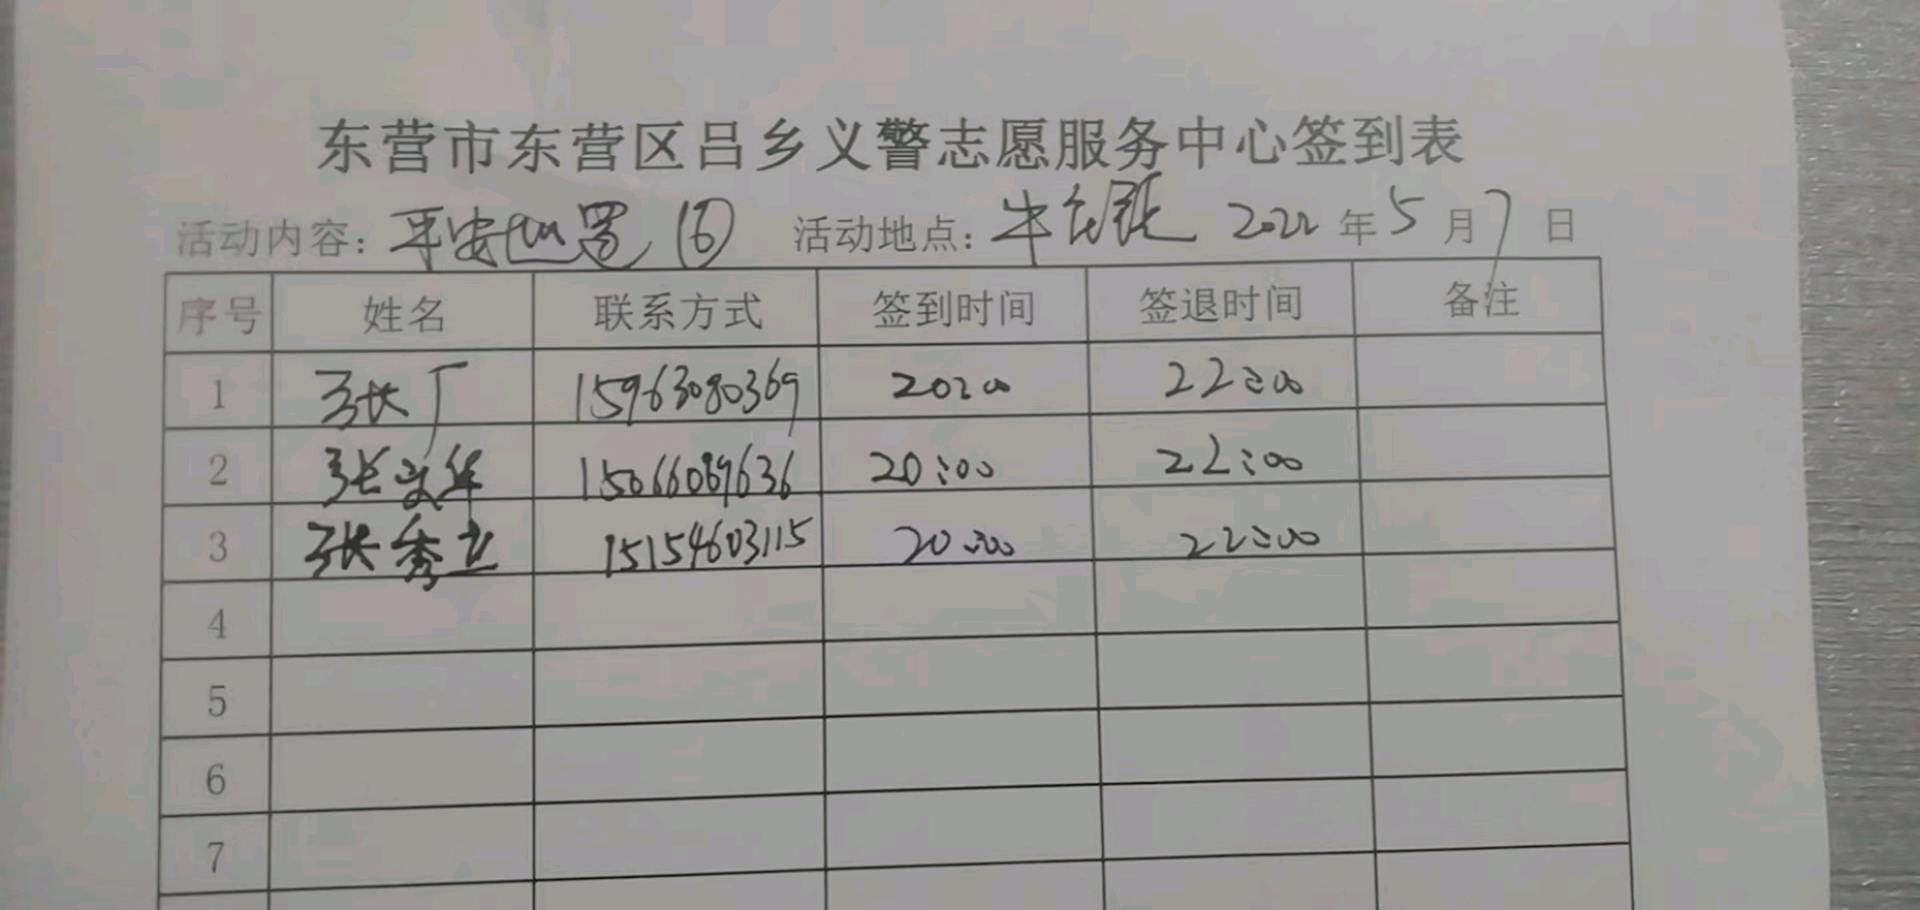 东营市东营区吕乡义警志愿服务中心签到表
活动内容: 平安巡逻 活动地点: 牛庄镇 2022 年 5 月 7 日
序号 姓名 联系方式 签到时间 签退时间 备注
1 张广 15963080369 20:00 22:00
2 张文华 15066089636 20:00 22:00
3 张秀立 15154603115 20:00 22:00
4
5
6
7